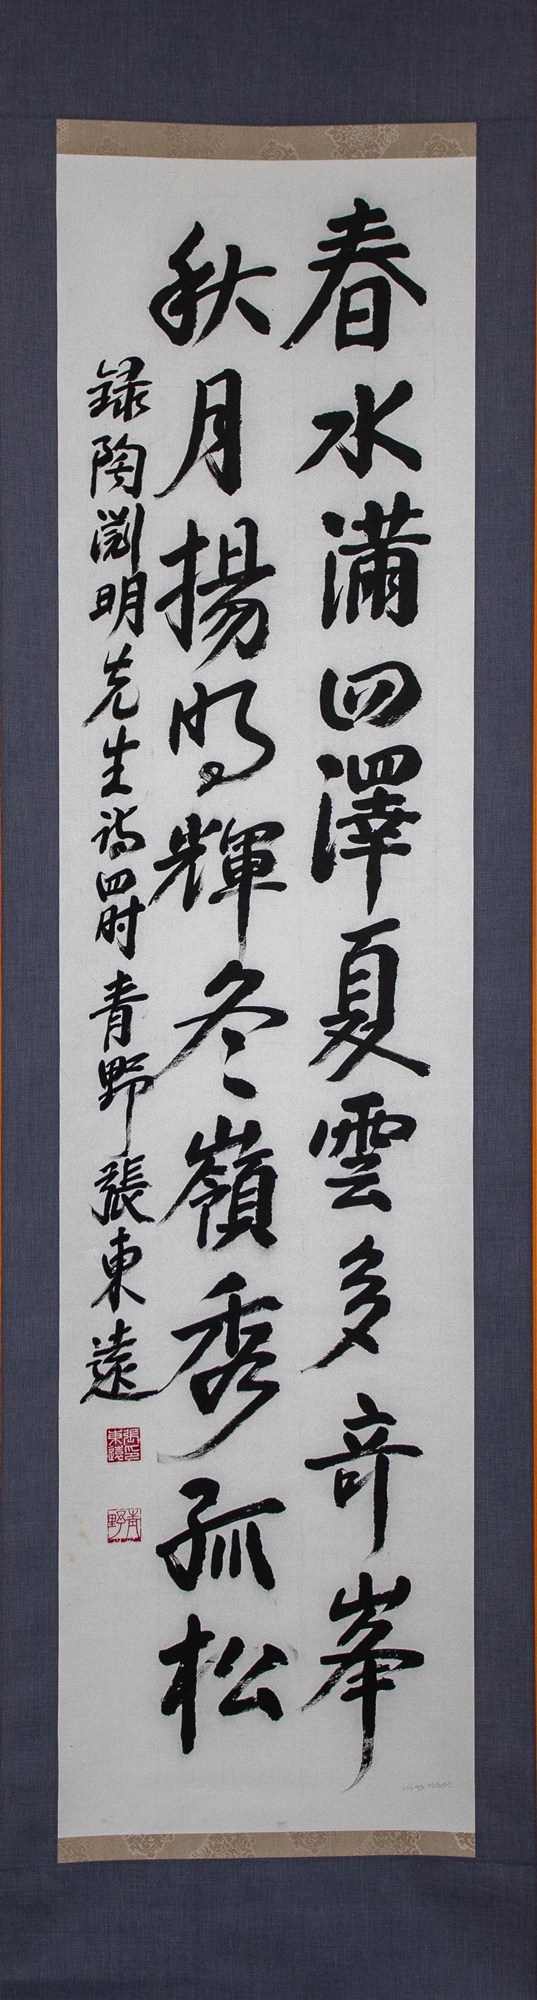 春水滿四澤夏雲多奇峯
秋月揚明輝冬嶺秀孤松
録陶淵明先生詩四时青野張東遠
張東遠印
青野